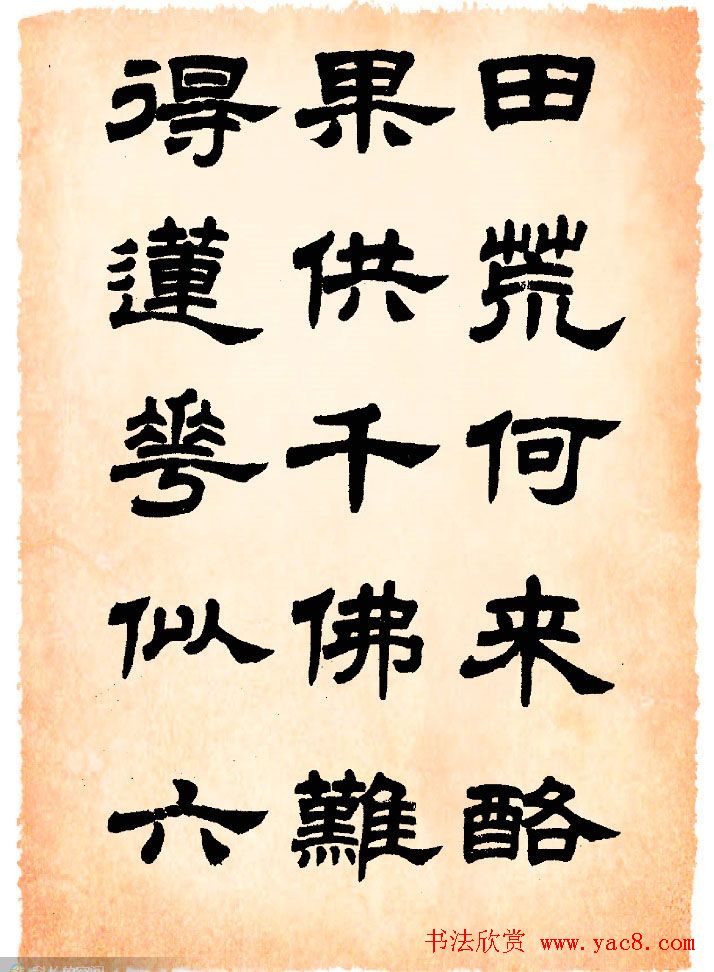 田荒何来酪
果供千佛難
得蓮花似六
书法欣赏 www.yac8.com